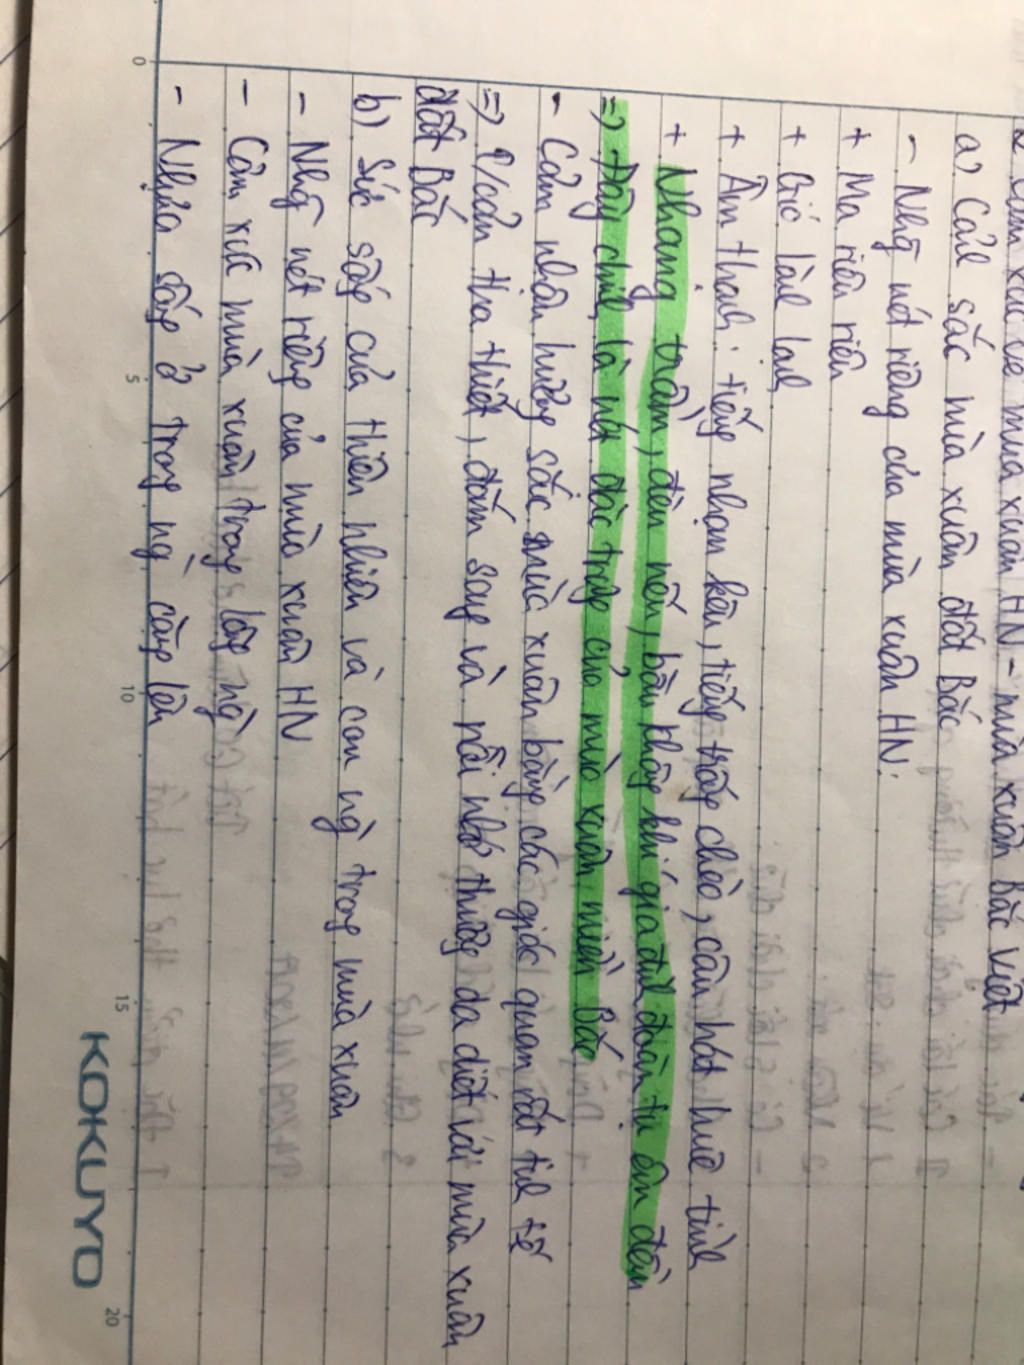 2. Cảm xúc về mùa xuân HN - mùa xuân Bắc Việt
a) Cảh sắc mùa xuân đất Bắc
- Nhữ nét riêng của mùa xuân HN:
+ Ma riêu riêu
+ Gió làh lạh
+ Âm thanh: tiếng nhạn kêu, tiếng trống chèo, câu hát huê tình
+ Nhang trầm, đèn nến, bầu không khí gia đìh đoàn tụ êm đềm
=> Đây chíh là nét đặc trưg của mùa xuân miền Bắc
- Cảm nhận hương sắc mùa xuân bằng các giác quan rất tih tế
=> T/cảm tha thiết, đắm say và nỗi nhớ thương da diết với mùa xuân
đất Bắc
b) Sức sốg của thiên nhiên và con ng̀ trog mùa xuân
- Nhữ nét riêg của mùa xuân HN
- Cảm xúc mùa xuân trong lòng ng̀
- Nhựa sốg ở trong ng̀ căng lên
0
5
10
15
20
KOKUYO